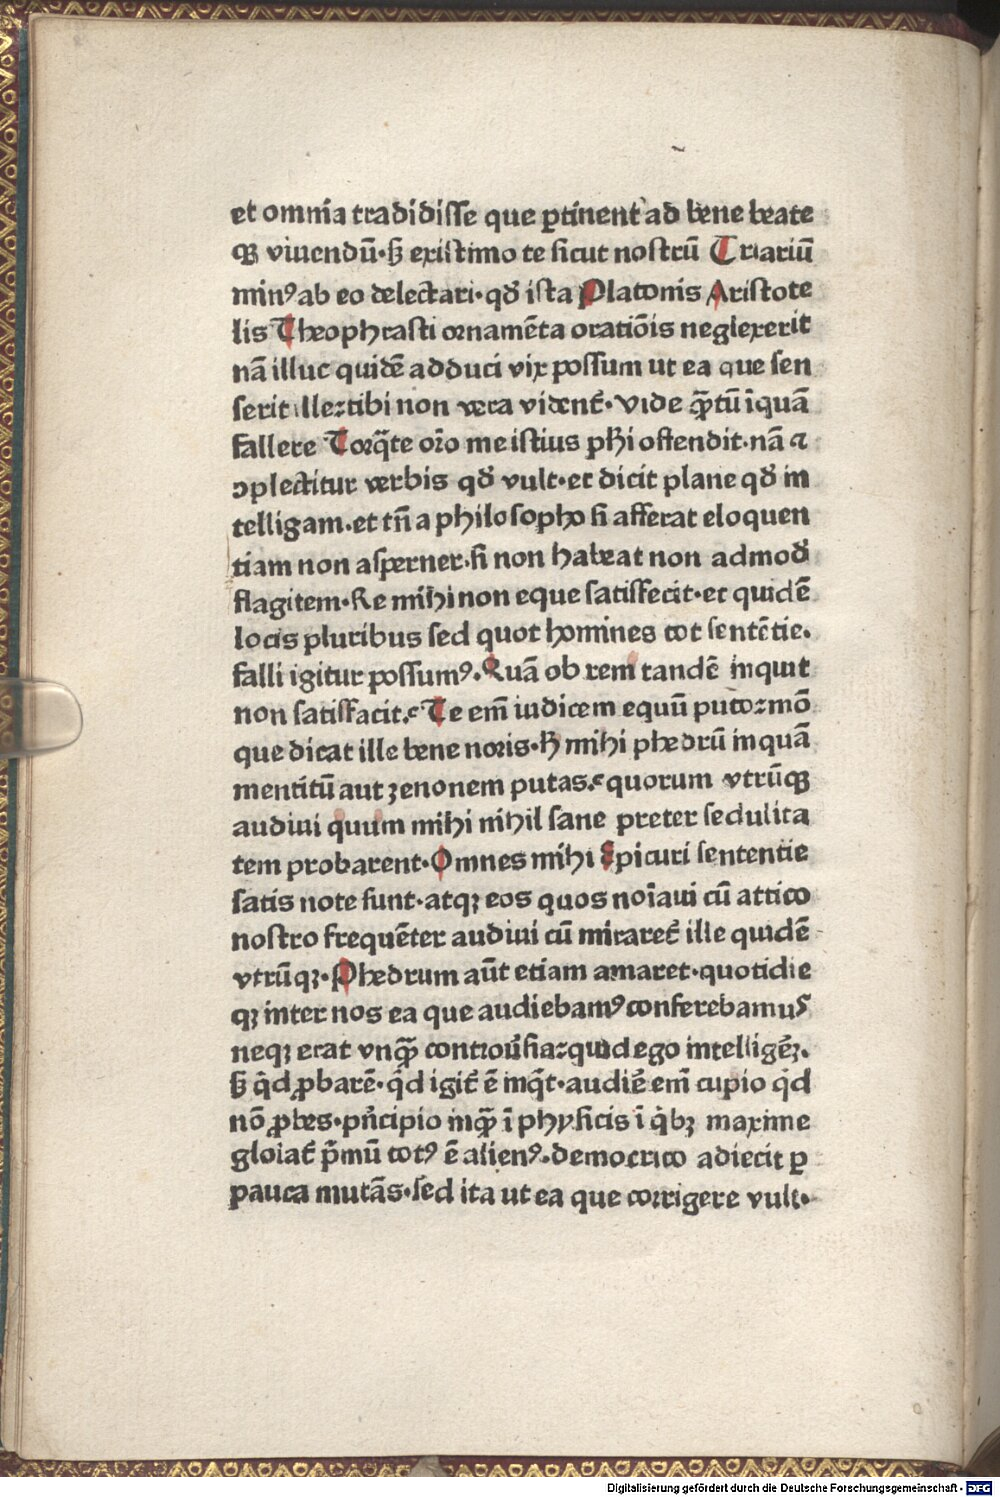 et omnia tradidisse que ꝑtinent ad bene beate
qꝫ viuendū·sꝫ existimo te sicut nostrū Triariū
minꝰ ab eo delectari·qď ista Platonis Aristote
lis Theophrasti ornamēta oratiōis neglexerit
nā illuc quidē adduci vix possum ut ea que sen
serit ille⁊tibi non vera vident᷑·vide q̄ꝫtū īquā
fallere Torq̄te orō me istius phī offendit·nā ⁊
ꝯplectitur verbis qď vult·et dicit plane qď in
telligam·et tn̄ a philosopho si afferat eloquen
tiam non asperner·si non habeat non admoď
flagitem·Re mihi non eque satisfecit·et quidē
locis pluribus sed quot homines tot sentētie·
falli igitur possumꝰ·Quā ob rem tandē inquit
non satisfacit.Te em̄ iudicem equū puto⁊mō
que dicat ille bene noris·N̄ mihi phedrū inquā
mentitū aut zenonem putas.quorum vtrūqꝫ
audiui quum mihi nihil sane preter sedulita
tem probarent·Omnes mihi Epicuri sententie
satis note sunt·atqꝫ eos quos noīaui cū attico
nostro frequēter audiui cū miraret᷑ ille quidē
vtrūqꝫ·Phedrum aūt etiam amaret·quotidie
qꝫ inter nos ea que audiebamꝰ conferebamus
neqꝫ erat vnq̄ꝫ controu͛sia⁊quid ego intelligēꝫ.
sꝫ qͥd ꝓbarē·qͥd igit᷑ ē inqͥt·audiē em̄ cupio qͥd
nō ꝓbes·pͥncipio inq̄ꝫ ī physicis ī qͥbꝫ maxime
gloiat᷑ pͥmū totꝰ ē alienꝰ·democrito adiecit ꝑ
pauca mutās·sed ita ut ea que corrigere vult·
Digitalisierung gefördert durch die Deutsche Forschungsgemeinschaft - DFG